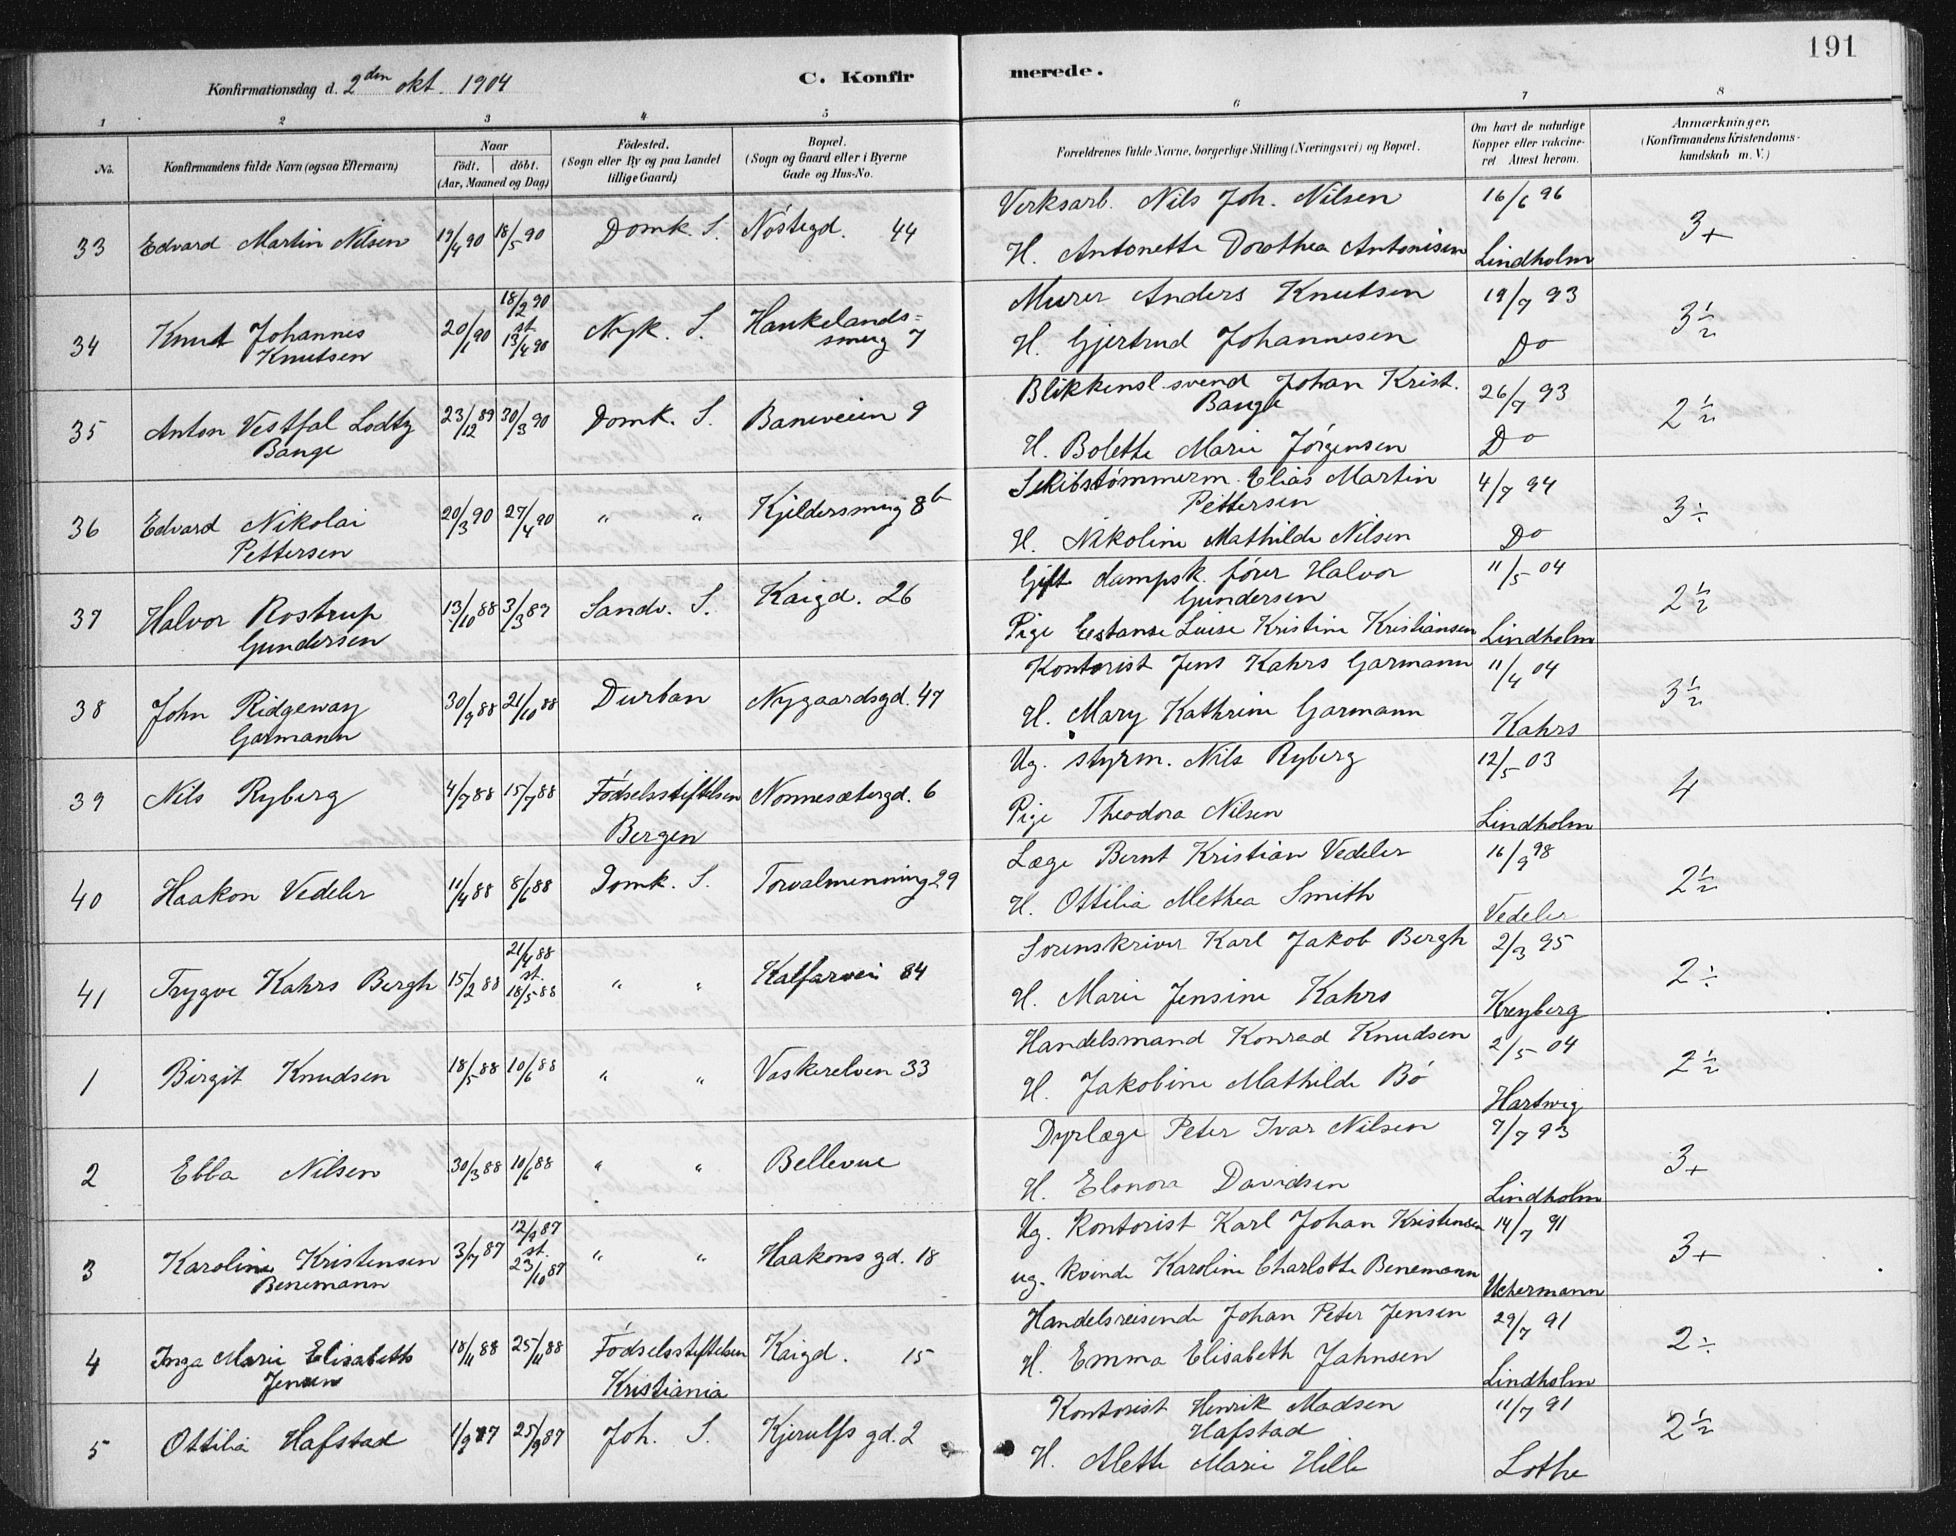 191
Konfirmationsdag d. 2den okt. 1904 C. Konfir merede.
1 2 3 4 5 6 7 8
No. Konfirmandens fulde Navn (ogsaa Efternavn) Naar födt. döbt. (Aar, Maaned og Dag) Födested. (Sogn eller By og paa Landet tillige Gaard) Bopæl. (Sogn og Gaard eller i Byerne Gade og Hus-No. Forældrenes fulde Navne, borgerlige Stilling (Næringsvei) og Bopæl. Om havt de naturlige Kopper eller vakcineret Attest herom. Anmærkninger. (Konfirmandens Kristendomskundskab m. V.)
33 Edvard Martin Nilsen 19/4 90 18/5 90 Domk. S. Nöstegd. 44 Verksarb. Nils Joh. Nilsen 16/6 96 3+
H. Antonette Dorothea Antonisen Lindholm
34 Knut Johannes Knutsen 20/1 90 18/2 90 st. 13/4 90 Nyk. S. Haukelandssmug 7 Murer Anders Knutsen 19/7 93 3 1/2
H. Gjertrud Johannesen Do
35 Anton Vestfal Lodtz Bange 23/12 89 30/3 90 Domk. S. Baneveien 9 Blikkensl.svend Johan Krist. Bange 26/7 93 2 1/2
H. Bolette Marie Jörgensen Do
36 Edvard Nikolai Pettersen 20/3 90 27/4 90 " " Kjeldersmug 8b Skibstømmerm. Elias Martin Pettersen 4/7 94 3 ÷
H. Nikoline Mathilde Nilsen Do
37 Halvor Rostrup Gundersen 13/10 88 3/3 89 Sandv. S. Kaigd. 26 Gift dampsk. förer Halvor Gundersen 11/5 04 2 1/2
Pige Luise Kristine Kristiansen Lindholm
38 John Ridgeway Garmann 30/9 88 21/10 88 Durban Nygaardsgd. 47 Kontorist Jens Kahrs Garmann 11/4 04 3 1/2
H. Mary Kathrine Garmann Kahrs
39 Nils Ryberg 4/7 88 15/7 88 Födselsstiftelsen Bergen Nonnesætergd. 6 Ug. styrm. Nils Ryberg 12/5 03 4
Pige Theodora Nilsen Lindholm
40 Haakon Vedeler 11/4 88 8/6 88 Domk. S. Torvalmenning 29 Læge Bernt Kristian Vedeler 16/9 98 2 1/2
H. Ottilia Methea Smith Vedeler
41 Trygve Kahrs Bergh 15/2 88 21/4 88 st. 18/5 88 " " Kalfarvei 84 Sorenskriver Karl Jakob Bergh 2/3 95 2 ÷
H. Marie Jensine Kahrs Kreyberg
1 Birgit Knudsen 18/5 88 10/6 88 " " Vaskerelven 33 Handelsmand Konrad Knudsen 2/5 04 2 1/2
H. Jakobine Mathilde Bö Hartwig
2 Ebba Nilsen 30/3 88 10/6 88 " " Bellevue Dyrlæge Peter Ivar Nilsen 7/7 93 3+
H. Elonora Davidsen Lindholm
3 Karoline Kristensen Benemann 3/7 87 12/9 87 st. 23/10 87 " " Haakons gd. 18 Ug. kontorist Karl Johan Kristensen 14/7 91 3+
ug. kvinde Karoline Charlotte Benemann Uchermann
4 Inga Marie Elisabeth Jensen 18/11 88 25/11 88 Födselsstiftelsen Kristiania Kaigd. 15 Handelsreisende Johan Peter Jensen 29/7 91 2 ÷
H. Emma Elisabeth Jahnsen Lindholm
5 Ottilia Hafstad 1/9 87 25/9 87 Joh. S. Kjerulfs gd. 2 Kontorist Henrik Madsen Hafstad 11/7 91 2 1/2
H. Alette Marie Hille Lothe